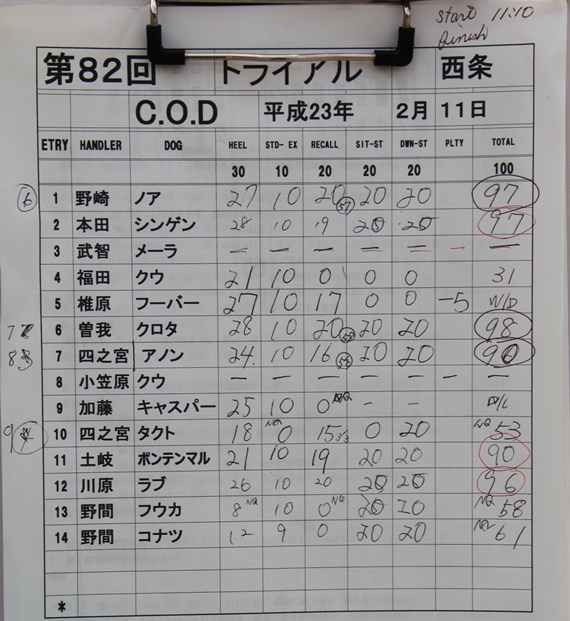 start 11:10
finish
第82回 トライアル 西条
C.O.D 平成23年 2月 11日
ETRY HANDLER DOG HEEL STD- EX RECALL SIT-ST DWN-ST PLTY TOTAL
30 10 20 20 20 100
6 1 野崎 ノア 27 10 20 20 20 97
2 本田 シンゲン 28 10 19 20 20 97
3 武智 メーラ — — — — — - —
4 福田 クウ 21 10 0 0 0 31
5 椎原 フーバー 27 10 17 0 0 -5 W/D
6 曽我 クロタ 28 10 20 20 20 98
7 四之宮 アノン 24 10 16 20 20 90
8 小笠原 クウ — — — — — - —
9 加藤 キャスパー 25 10 0 NQ - -
10 四之宮 タクト 18 NQ 0 15 0 20 NQ 53
11 土岐 ボンテンマル 21 10 19 20 20 90
12 川原 ラブ 26 10 20 20 20 96
13 野間 フウカ 8 NQ 10 0 NQ 20 20 NQ 58
14 野間 コナツ 12 9 0 20 20 NQ 61
*